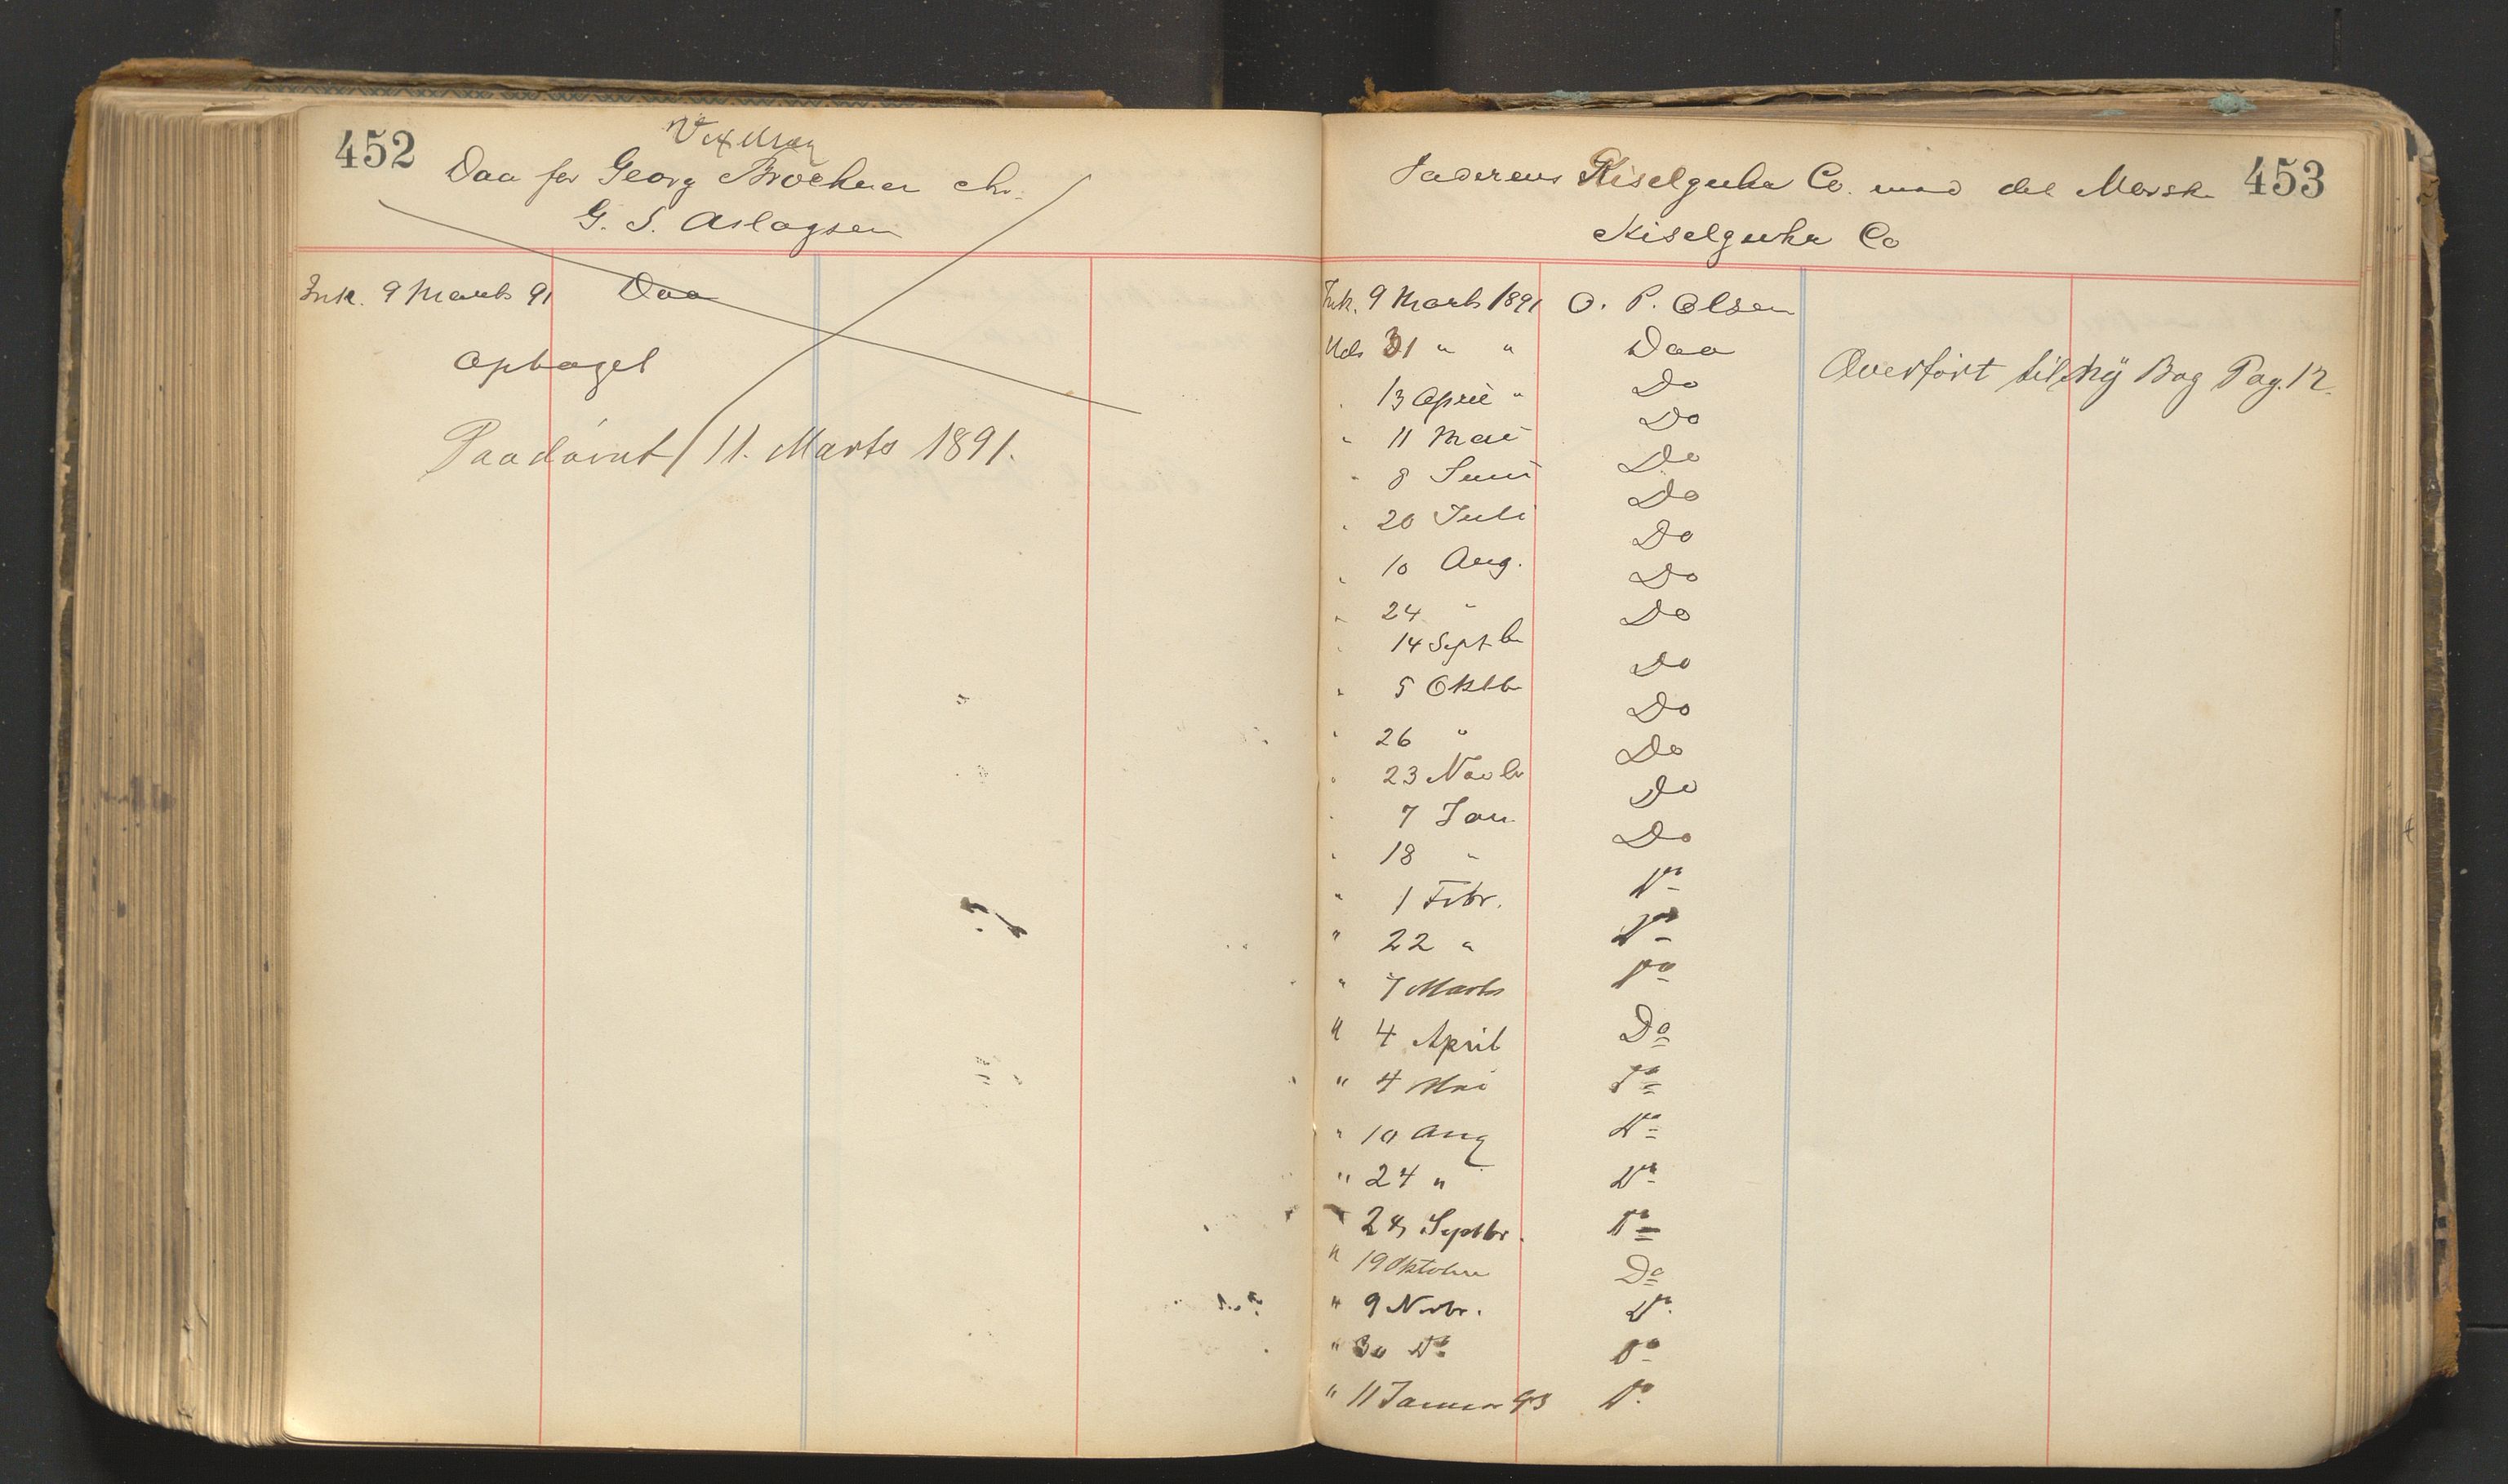 452
Vexelsag
Daa for Georg Brochner ctr.
G. S. Aslagsen
Ink. 9 Marts 91 Daa
Optaget
Paadømt 11. Marts 1891.
453
Jaderens Kiselguhr Co. mod det Norske
Kiselguhr Co
Ink. 9 Marts 1891 O. P. Olsen
Uds 31 " " Daa
" 13 April " Do
" 11 Mai Do
" 8 Juni Do
" 20 Juli Do
" 10 Aug. Do
" 24 " Do
" 14 Septbr Do
" 5 Oktbr Do
" 26 " Do
" 23 Novbr Do
" 7 Jan Do
" 18 " Do
" 1 Febr. Do
" 22 " Do
" 7 Marts Do
" 4 April Do
" 4 Mai Do
" 10 Aug Do
" 24 " Do
" Septbr. Do
" 19 Oktober Do
" 9 Novbr. Do
" 30 Do Do
" 11 Januar 93 Do
Overført til ny Bog Pag. 12.